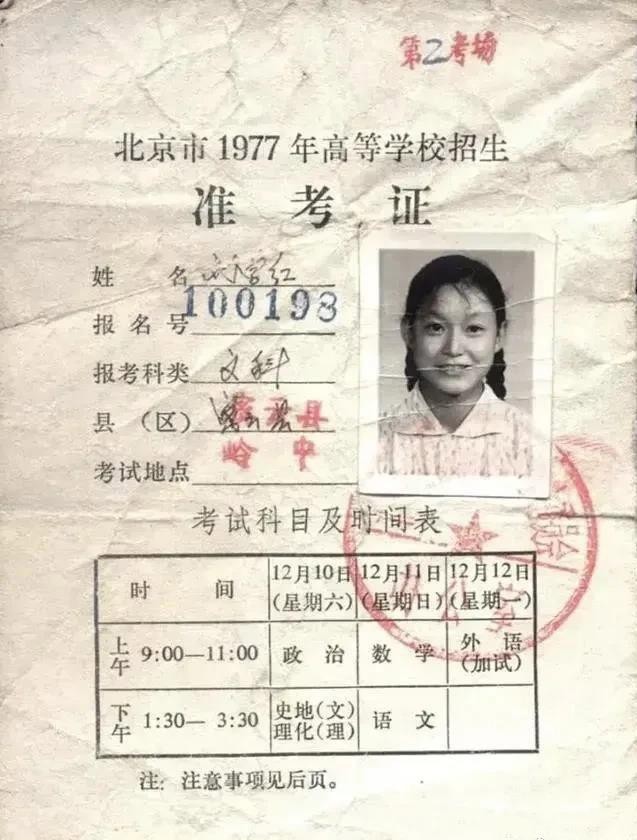 第2考场
北京市1977年高等学校招生
准考证
姓名 刘学红
报名号 100198
报考科类 文科
县(区) 密云县
密云县
岭中
考试地点
考试科目及时间表
时间 12月10日(星期六) 12月11日(星期日) 12月12日(星期一)
上午 9:00—11:00 政治 数学 外语(加试)
下午 1:30—3:30 史地(文)理化(理) 语文
注:注意事项见后页。